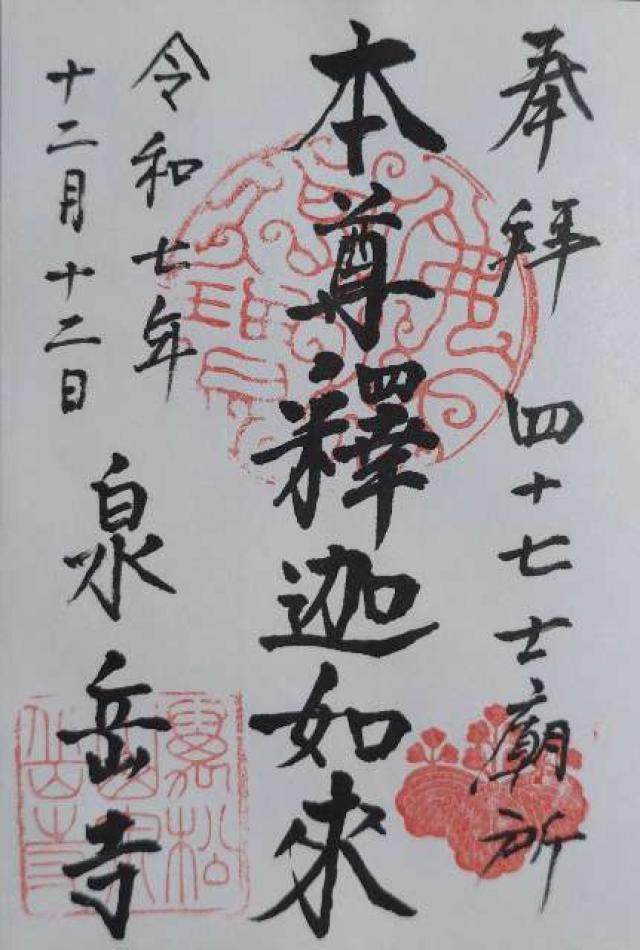 奉拜 四十七士廟所
本尊釋迦如來
令和七年
十二月十二日
泉岳寺